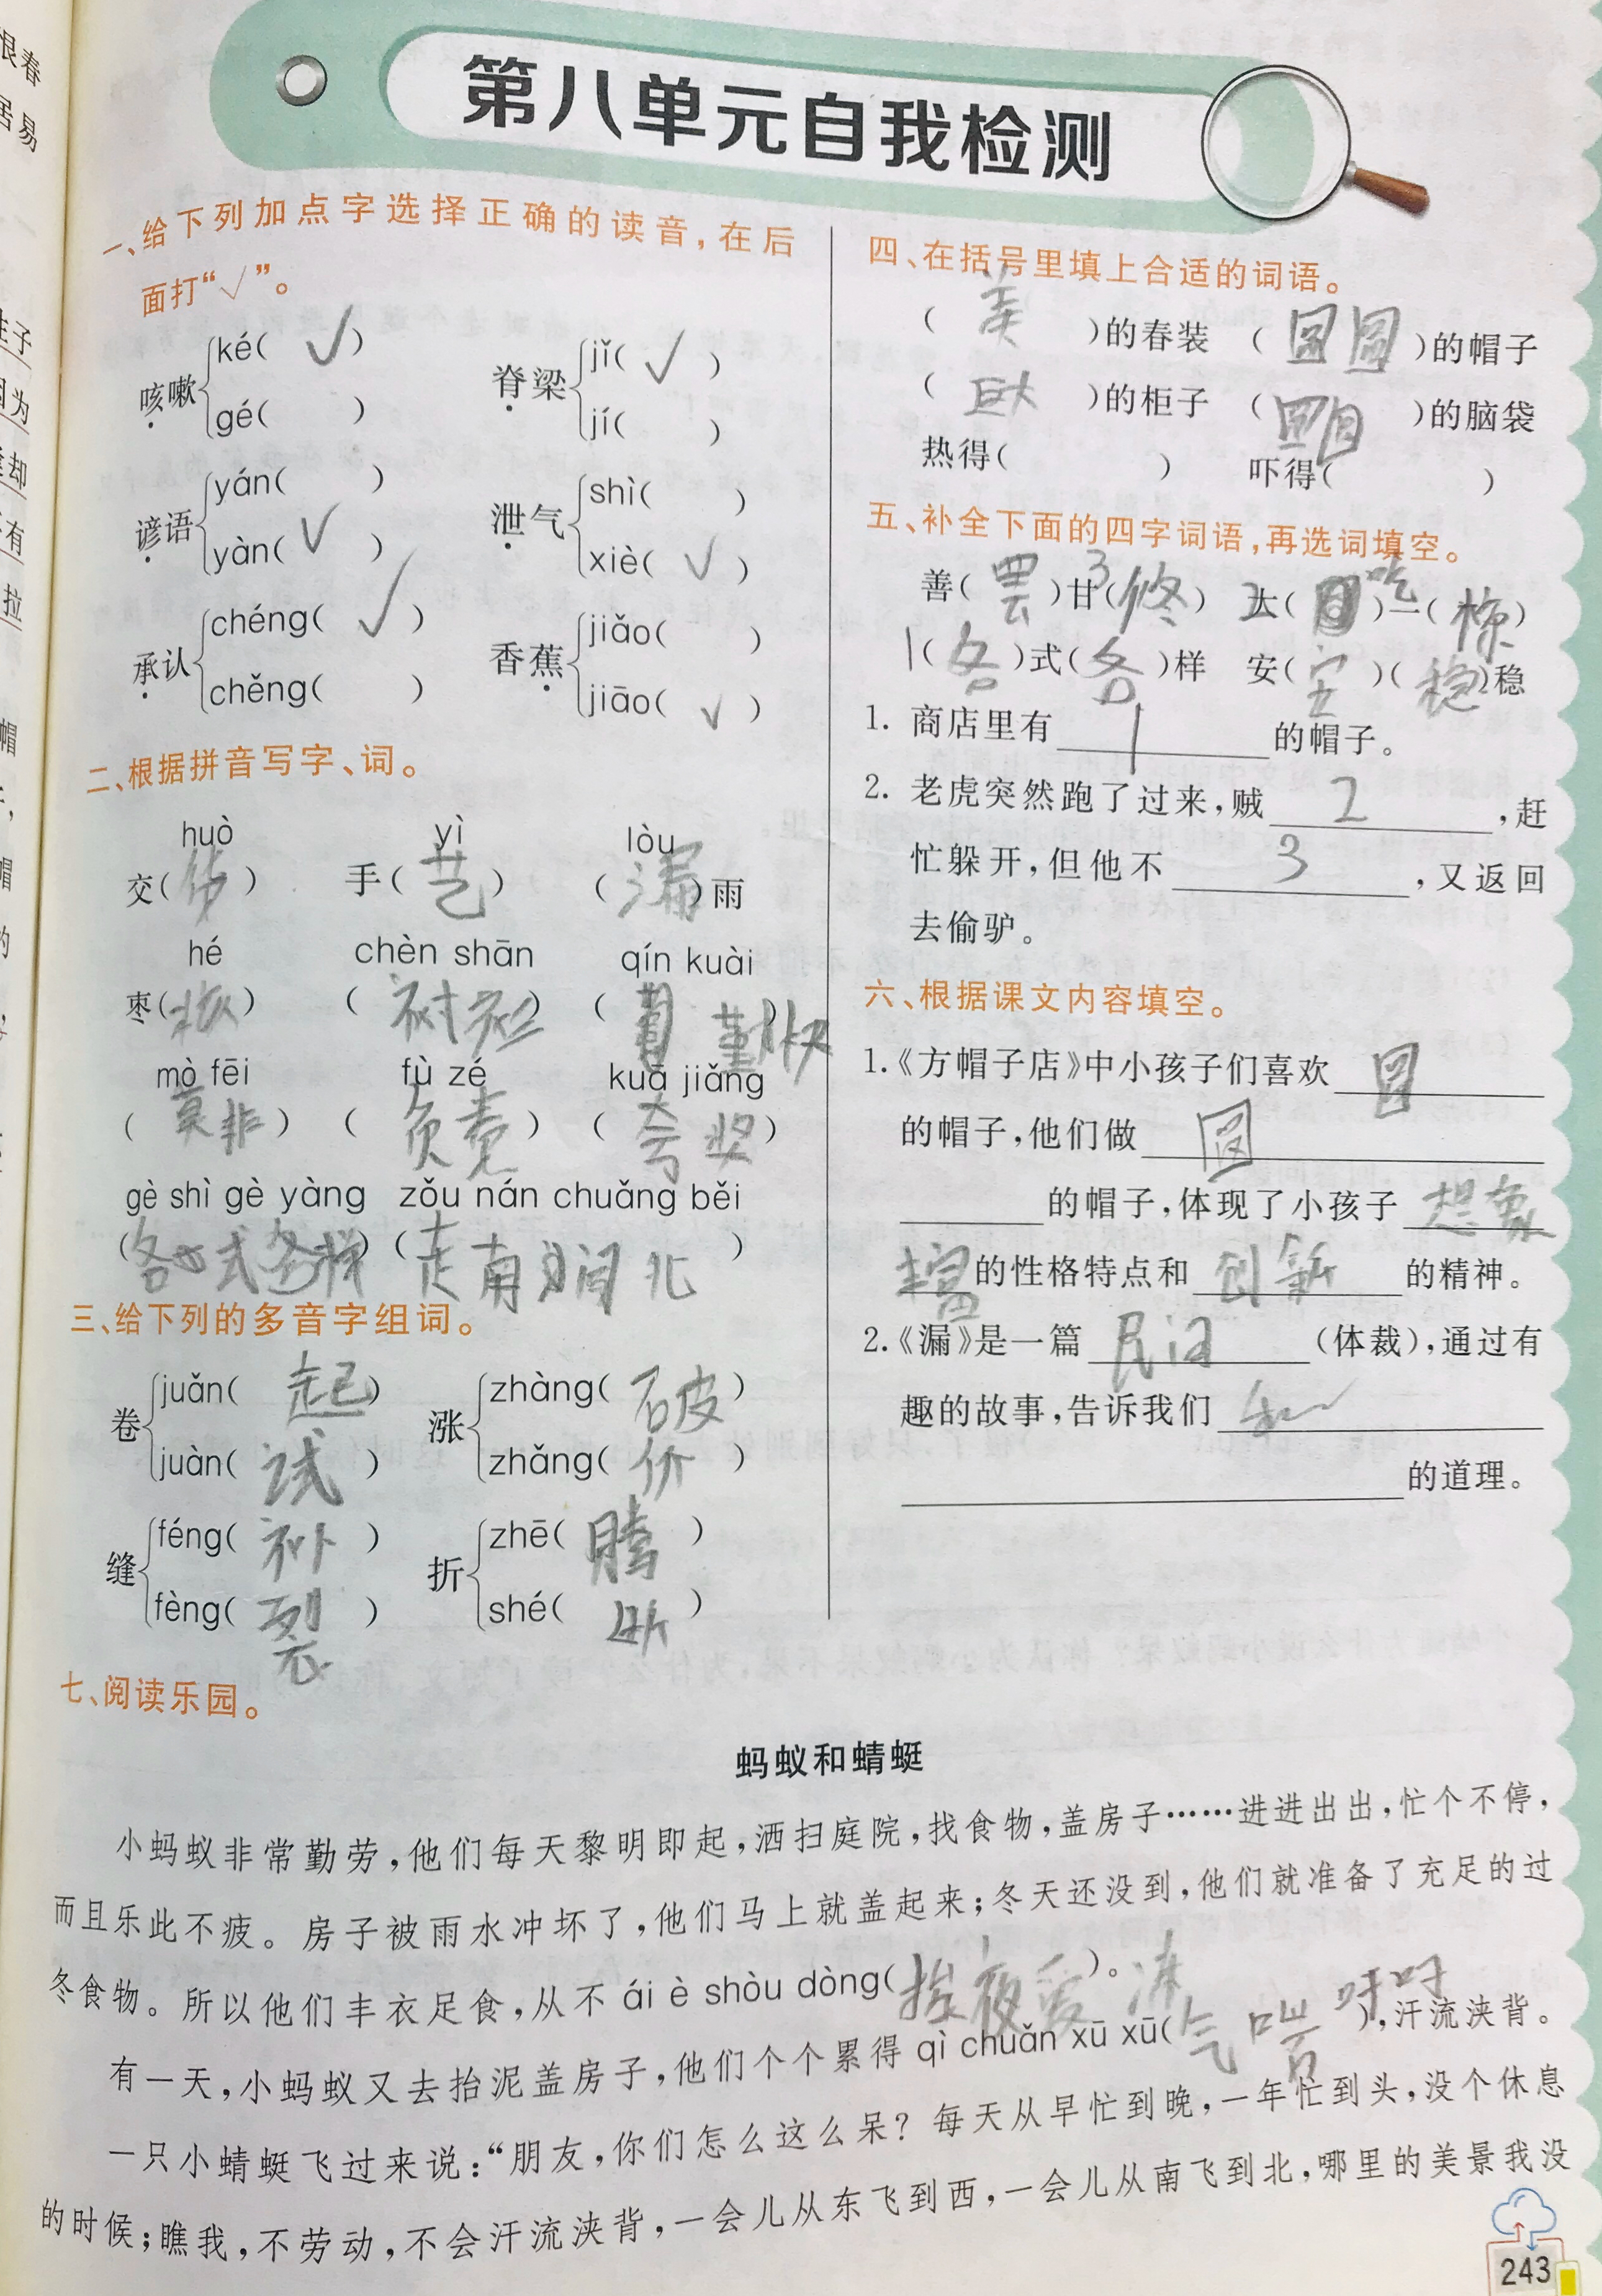 第八单元自我检测
一、给下列加点字选择正确的读音，在后
面打“√”。
咳嗽 ké( √ )
gé( )
脊梁 jǐ( √ )
jí( )
谚语 yán( )
yàn( √ )
泄气 shì( )
xiè( √ )
承认 chéng( √ )
chěng( )
香蕉 jiǎo( )
jiāo( √ )
二、根据拼音写字、词。
huò yì lòu
交( ) 手(艺) (漏)雨
hé chèn shān qín kuài
枣(核) (衬衫) (勤快)
mò fēi fù zé kuā jiǎng
(莫非) (负责) (夸奖)
gè shì gè yàng zǒu nán chuǎng běi
(各式各样) (走南闯北)
三、给下列的多音字组词。
卷 juǎn( 起 )
juàn( 试 )
涨 zhàng( 破 )
zhǎng( 价 )
缝 féng( 补 )
fèng( 裂 )
折 zhē( 腾 )
shé( 断 )
四、在括号里填上合适的词语。
( 美 )的春装 ( 圆圆 )的帽子
( 巨大 )的柜子 ( )的脑袋
热得( ) 吓得( )
五、补全下面的四字词语，再选词填空。
善(罢)甘( ) 3 2 大(吃)一(惊)
1(各)式(各)样 安(安)(稳)稳
1. 商店里有 1 的帽子。
2. 老虎突然跑了过来，贼 2 ，赶
忙躲开，但他不 3 ，又返回
去偷驴。
六、根据课文内容填空。
1.《方帽子店》中小孩子们喜欢 圆
的帽子，他们做 圆
的帽子，体现了小孩子 想象
丰富 的性格特点和 创新 的精神。
2.《漏》是一篇 民间 （体裁），通过有
趣的故事，告诉我们
的道理。
七、阅读乐园。
蚂蚁和蜻蜓
小蚂蚁非常勤劳，他们每天黎明即起，洒扫庭院，找食物，盖房子……进进出出，忙个不停，
而且乐此不疲。房子被雨水冲坏了，他们马上就盖起来；冬天还没到，他们就准备了充足的过
冬食物。所以他们丰衣足食，从不 ái è shòu dòng(挨夜受冻)。
有一天，小蚂蚁又去抬泥盖房子，他们个个累得 qì chuǎn xū xū(气喘吁吁)，汗流浃背。
一只小蜻蜓飞过来说：“朋友，你们怎么这么呆？每天从早忙到晚，一年忙到头，没个休息
的时候；瞧我，不劳动，不会汗流浃背，一会儿从东飞到西，一会儿从南飞到北，哪里的美景我没
243